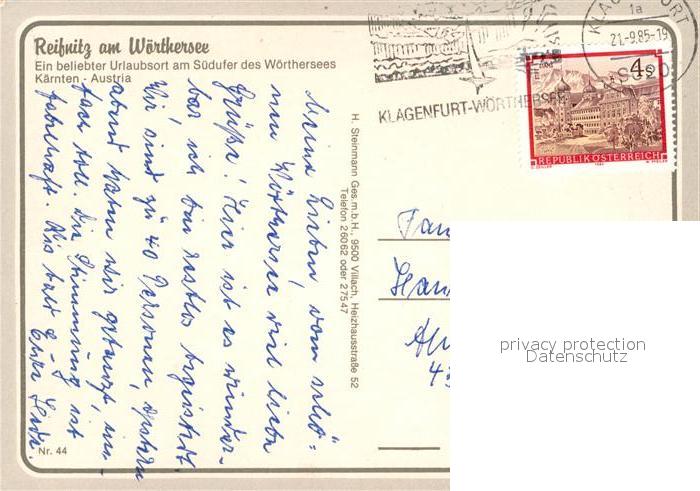 Reifnitz am Wörthersee
Ein beliebter Urlaubsort am Südufer des Wörthersees
Kärnten - Austria
KLAGENFURT
1a
21.-9.85-19
9020
KLAGENFURT-WÖRTHERSEE
4 S
REPUBLIK ÖSTERREICH
H. Steinmann Ges.m.b.H., 9500 Villach, Heizhausstraße 52
Telefon 26062 oder 27547
Meine Lieben, vom schö=
nen Wörthersee viel liebe
Grüße! Hier ist es wunder-
bar, ich bin restlos begeistert.
Wir sind zu 40 Personen, gestern
abend haben wir getanzt, ein-
fach toll. Die Stimmung ist
fabelhaft. Bis bald
Eure
Fam
Nr. 44
privacy protection
Datenschutz